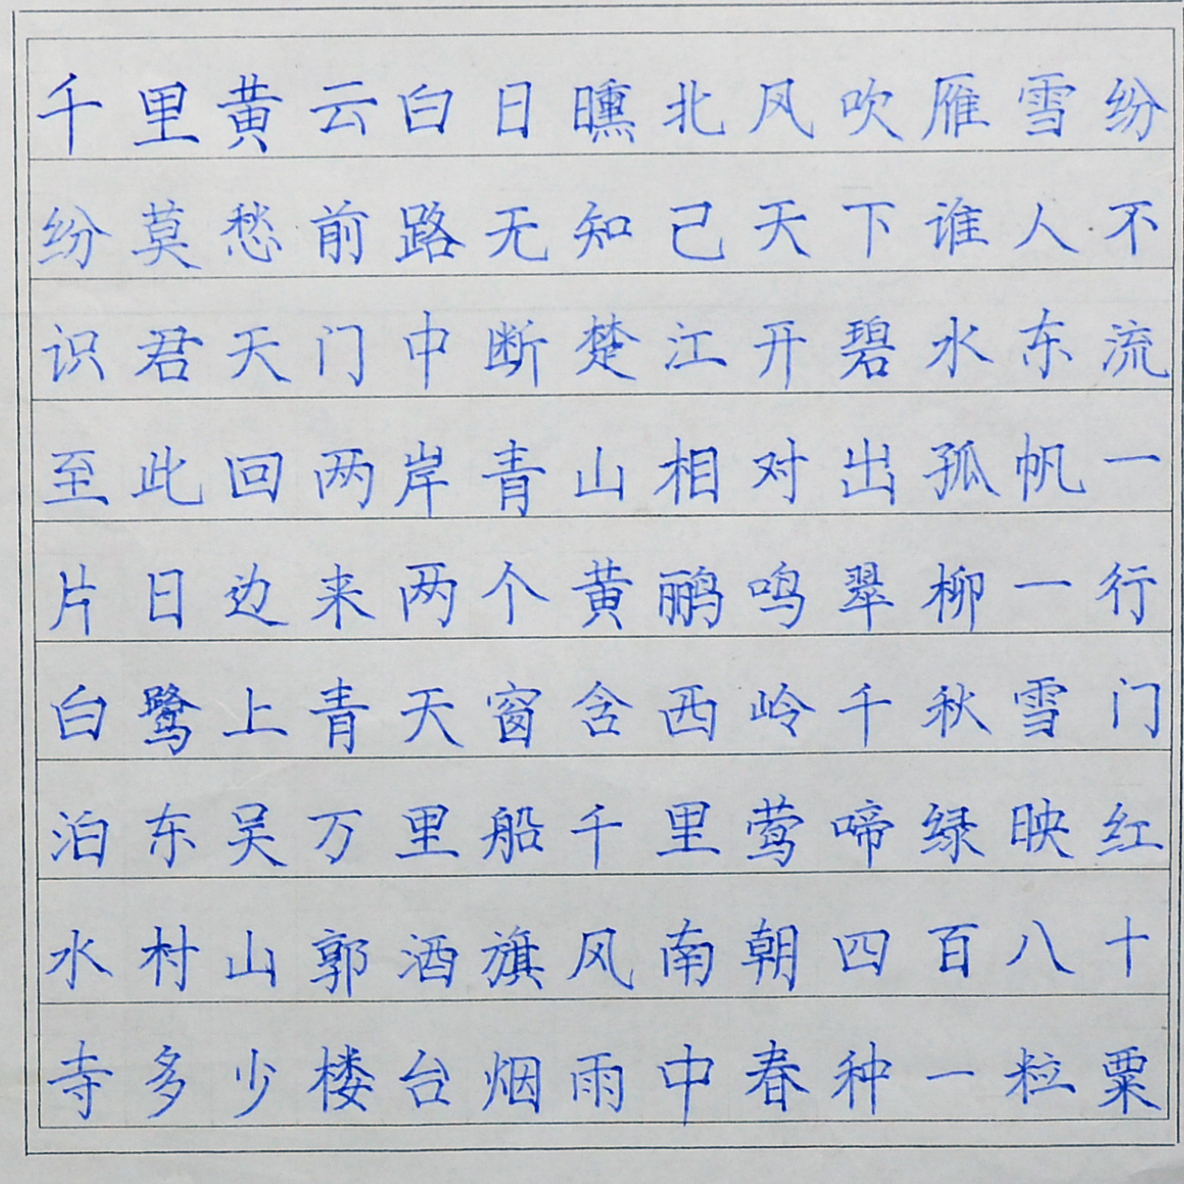 千里黄云白日曛北风吹雁雪纷
纷莫愁前路无知己天下谁人不
识君天门中断楚江开碧水东流
至此回两岸青山相对出孤帆一
片日边来两个黄鹂鸣翠柳一行
白鹭上青天窗含西岭千秋雪门
泊东吴万里船千里莺啼绿映红
水村山郭酒旗风南朝四百八十
寺多少楼台烟雨中春种一粒粟